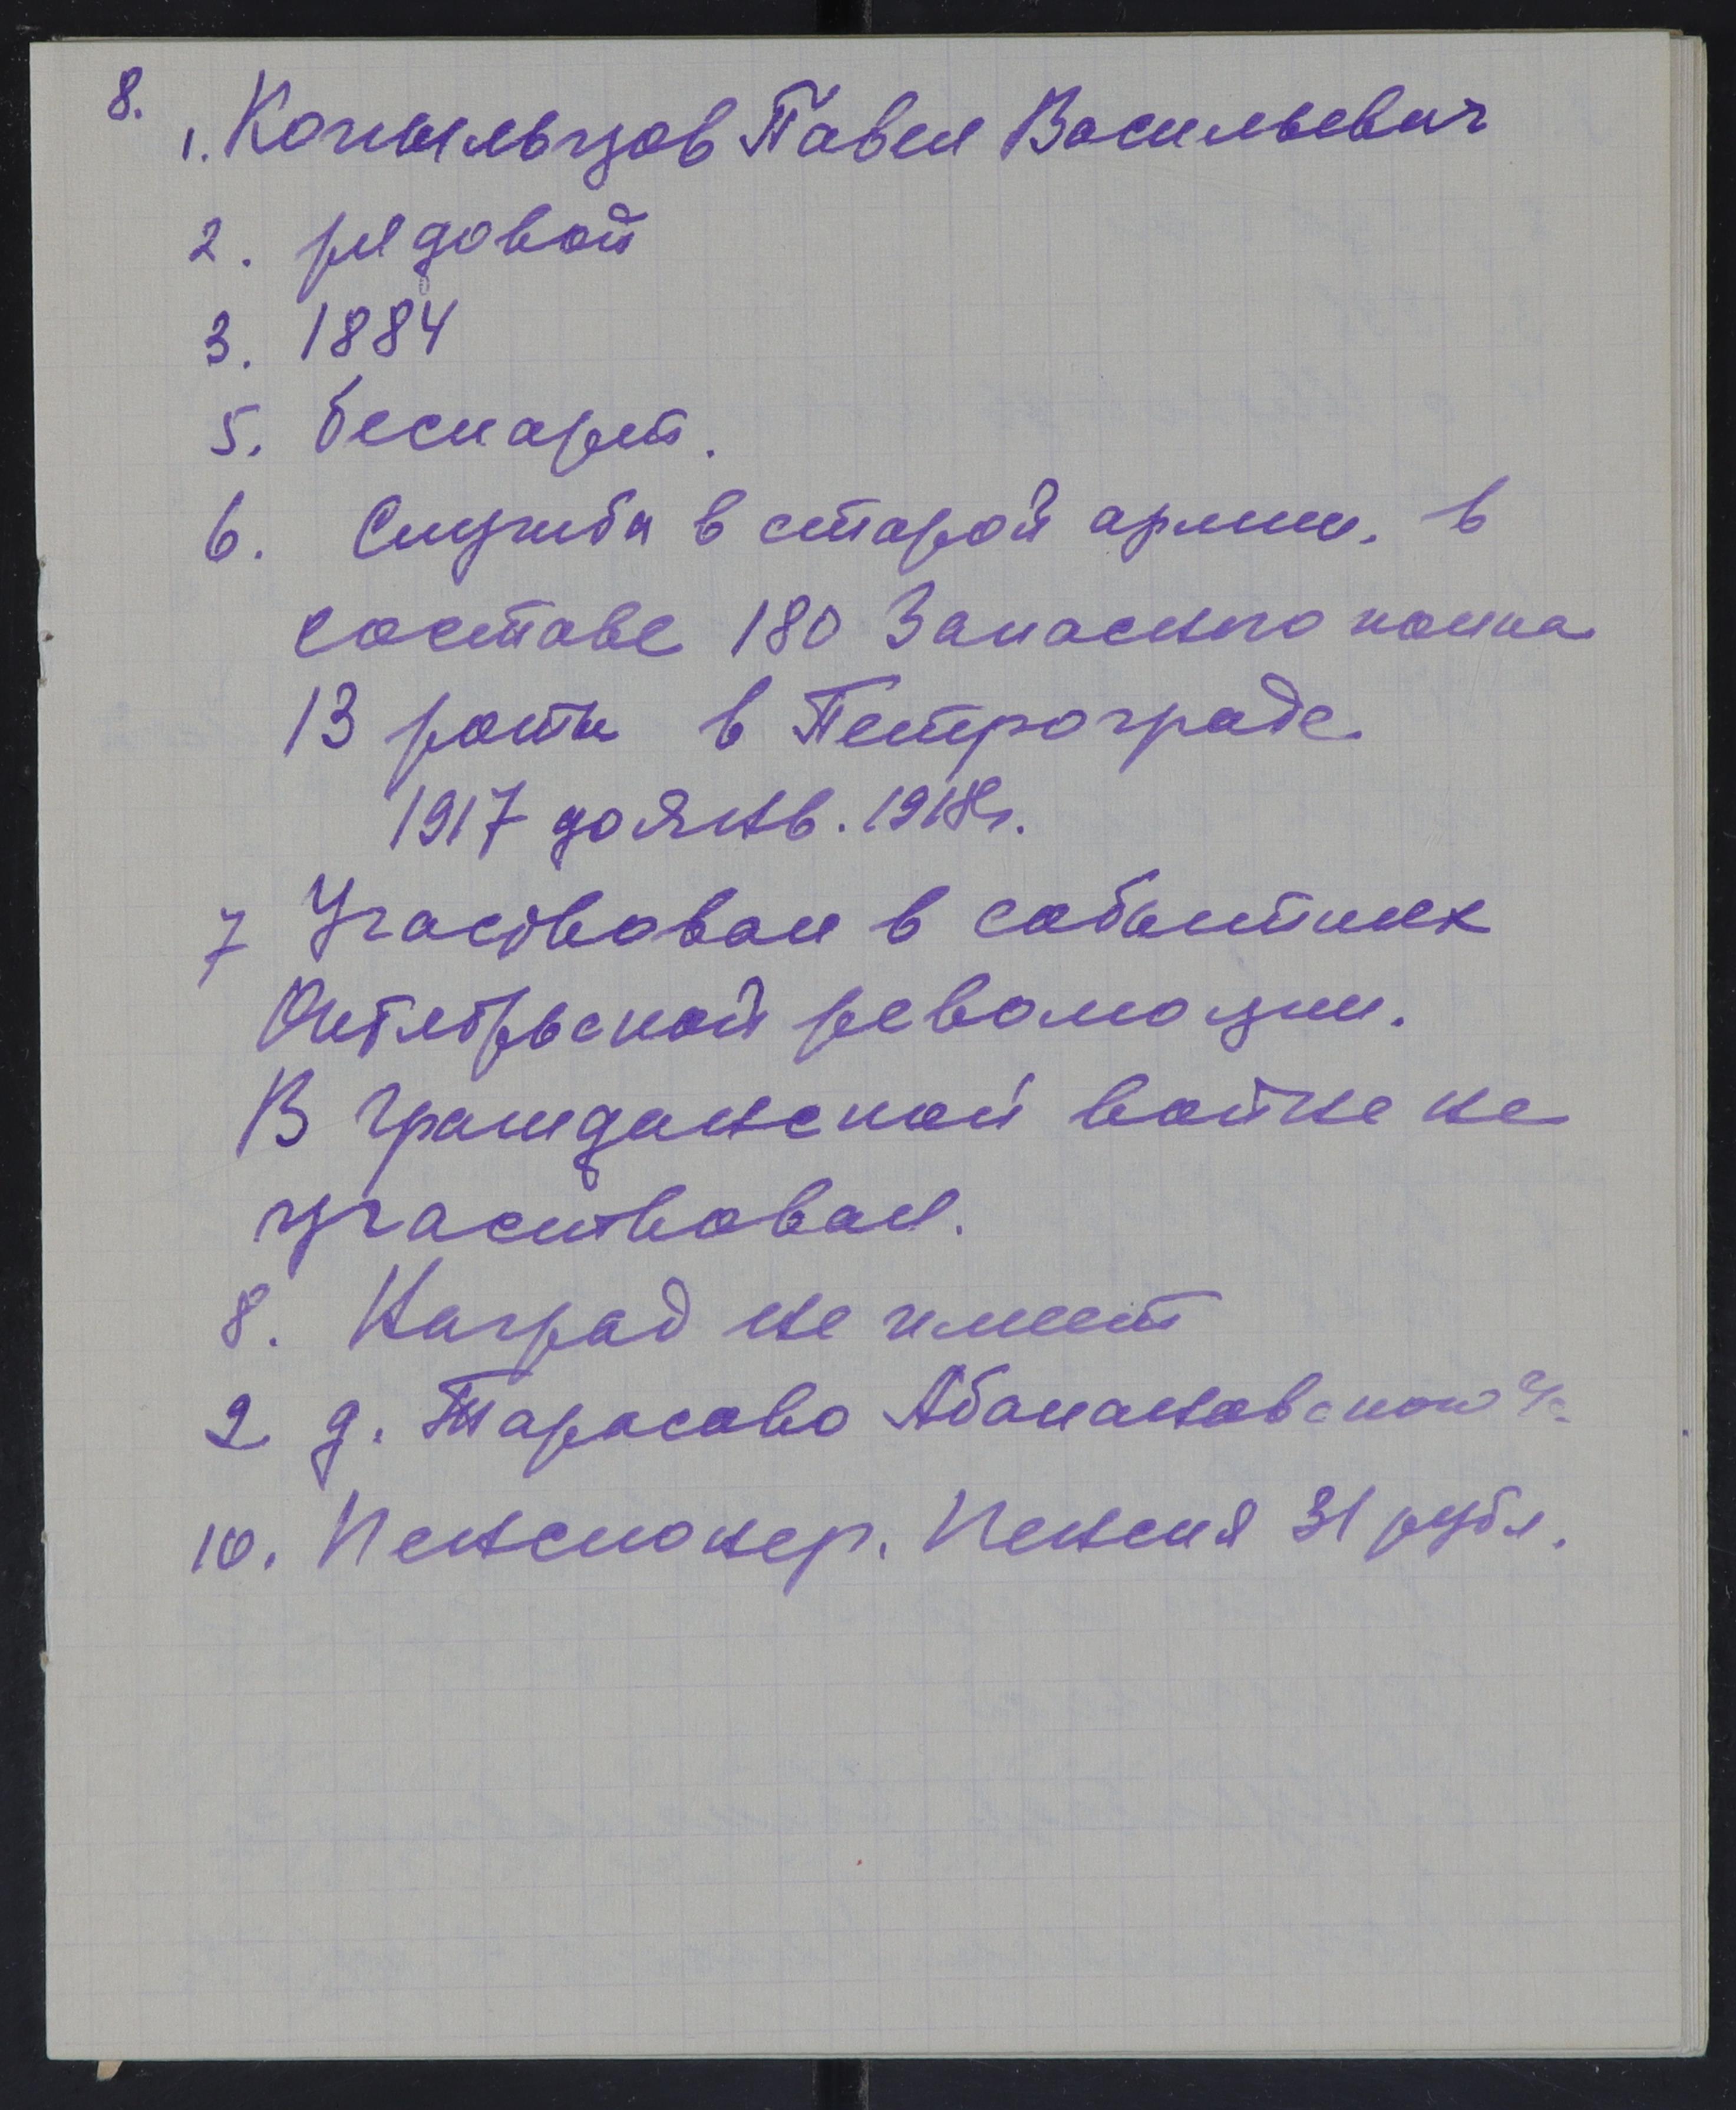 8.
1. Копыльцов Павел Васильевич
2. рядовой
3. 1884
5. беспарт.
6. Служба в старой армии. в
составе 180 Запасного полка
13 роты в Петрограде
1917 до Янв. 1918 г.
7 Участвовал в событиях
Октябрьской революции.
В гражданской войне не
участвовал.
8. Наград не имеет
9 д. Тарасово
10. Пенсионер. Пенсия 31 рубл.